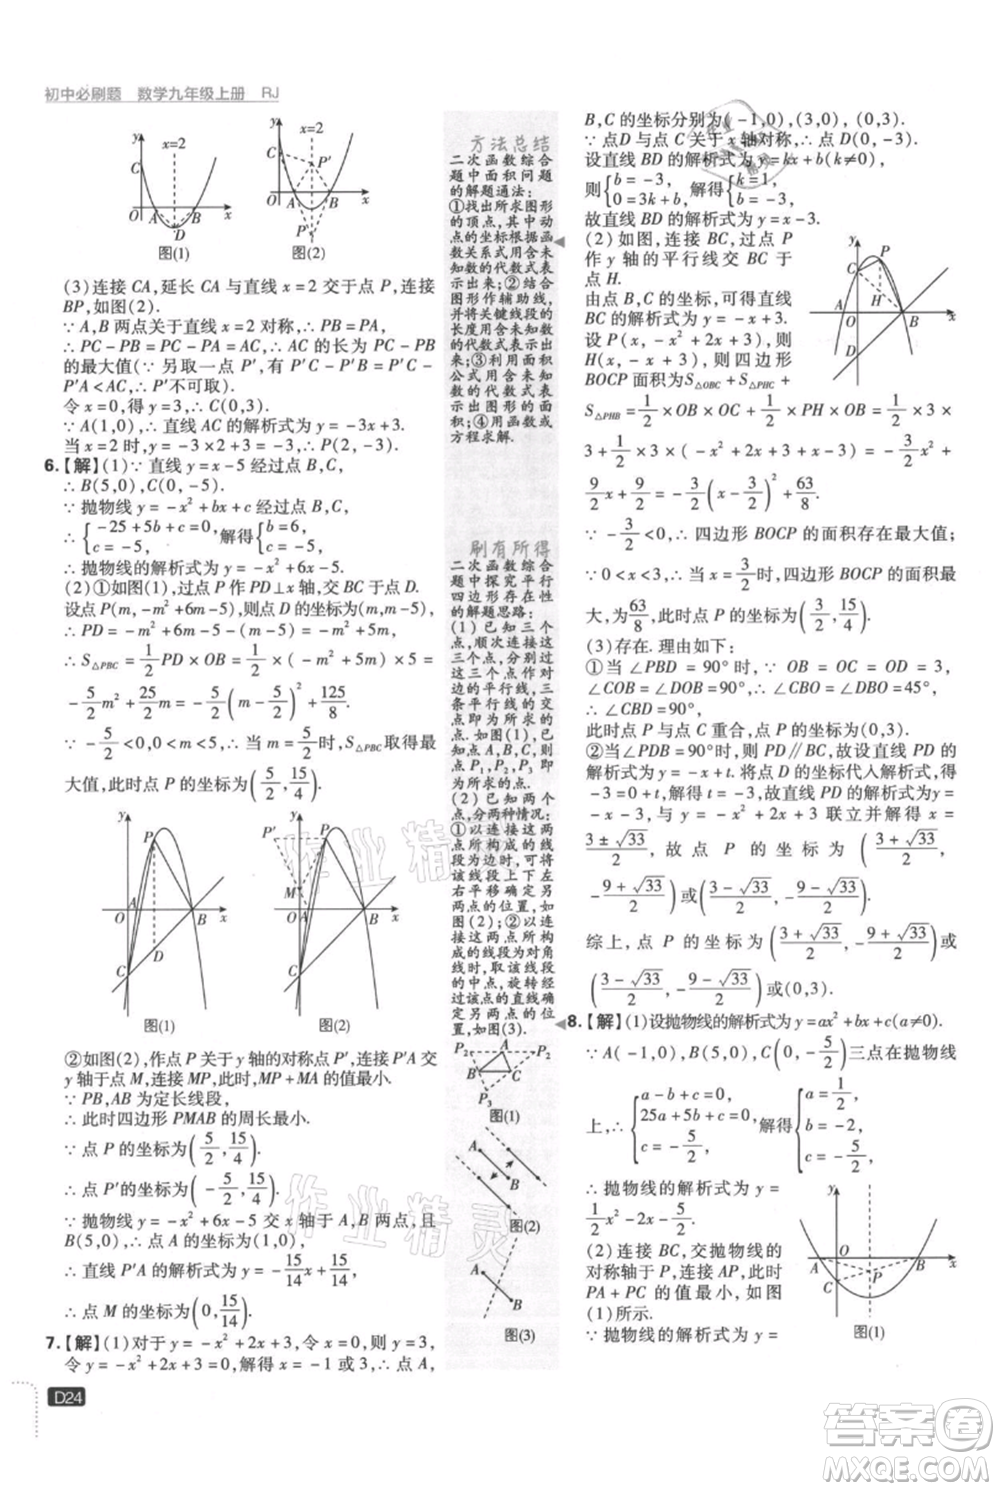 初中必刷题 数学九年级上册 RJ
y x=2 O A B x D 图(1)
y x=2 C P O A B x P' 图(2)
(3)连接 CA,延长 CA 与直线 x=2 交于点 P,连接
BP,如图(2).
∵ A,B 两点关于直线 x=2 对称,∴ PB=PA,
∴ PC-PB=PC-PA=AC,∴ AC 的长为 PC-PB
的最大值(∵ 另取一点 P',有 P'C-P'B=P'C-
P'A<AC,∴ P'不可取).
令 x=0,得 y=3,∴ C(0,3).
∵ A(1,0),∴ 直线 CA 的解析式为 y=-3x+3.
当 x=2 时,y=-3x+3=-3,∴ P(2,-3).
6.【解】(1)∵ 直线 y=x-5 经过点 B,C,
∴ B(5,0),C(0,-5).
∵ 抛物线 y=-x²+bx+c 经过点 B,C,
∴ {-25+5b+c=0, c=-5, 解得 {b=6, c=-5,
∴ 抛物线的解析式为 y=-x²+6x-5.
(2)①如图(1),过点 P 作 PD⊥x 轴,交 BC 于点 D.
设点 P(m,-m²+6m-5),则点 D 的坐标为(m,m-5),
∴ PD=-m²+6m-5-m+5=-m²+5m,
∴ S△PBC=1/2 PD×OB=1/2(-m²+5m)×5=
-5/2 m²+25/2 m=-5/2(m-5/2)²+125/8.
∵ -5/2<0,0<m<5,∴ 当 m=5/2 时,S△PBC取得最
大值,此时点 P 的坐标为(5/2,15/4).
y P O A B x D C 图(1)
y P' P M O A B x C 图(2)
②如图(2),作点 P 关于 y 轴的对称点 P',连接 P'A 交
y 轴于点 M,连接 MP,此时 MA+MP 的值最小.
∵ PB,AB 为定长线段,
∴ 此时四边形 PMAB 的周长最小.
∵ 点 P 的坐标为(5/2,15/4),
∴ 点 P'的坐标为(-5/2,15/4).
∵ 抛物线 y=-x²+6x-5 交 x 轴于 A,B 两点,且
B(5,0),∴ 点 A 的坐标为(1,0),
∴ 直线 P'A 的解析式为 y=-15/14 x+15/14,
∴ 点 M 的坐标为(0,15/14).
7.【解】(1)对于 y=-x²+2x+3,令 x=0,则 y=3,
令 y=-x²+2x+3=0,解得 x=-1 或 3,∴ 点 A,
D24
方法总结
二次函数综合
题中面积问题
的解题通法:
①找出所求图形
的顶点,其中动
点的坐标根据函
数关系式用含未
知数的代数式表
示出来;②结合
图形作辅助线,
并将关键线段的
长度用含未知数
的代数式表示出
来;③利用面积
公式用含未知
数的代数式表
示出图形的面
积;④用函数或
方程求解.
刷有所得
二次函数综合
题中探究平行
四边形存在性
的解题思路:
(1)已知三个
点,顺次连接这
三个点,分别过
三个点作所对
边的平行线,三
条平行线的交
点即为所求的
点.如图(1),已
知点 A,B,C,则
点 P₁,P₂,P₃即
为所求的点.
(2)已知两个
点,分两种情况:
①以连接这两
点所构成的线
段为边时,可将
线段两边向左
右平移确定另
两点的位置,如
图(2);②以连
接这两点的线
段为对角线时,
取该线段的中
点,旋转经过
该点的直线确定
另两点的位置,
如图(3).
P₁ A P₂ B C P₃ 图(1)
A B 图(2)
A B 图(3)
B,C 的坐标分别为(-1,0),(3,0),(0,3).
∵ 点D与点 C 关于 x 轴对称,∴ 点D(0,-3).
设直线 BD 的解析式为 y=kx+b(k≠0),
则 {b=-3, 0=3k+b, 解得 {k=1, b=-3,
故直线 BD 的解析式为 y=x-3.
(2)如图,连接 BC,过点 P
作 y 轴的平行线交 BC 于
点 H.
由点 B,C 的坐标,可得直线
BC 的解析式为 y=-x+3.
设 P(x,-x²+2x+3),则
H(x,-x+3),则四边形
BOCP 面积为S△OBC+S△PHC+
y P C H A O B x D
S△PHB=1/2×OB×OC+1/2×PH×OB=1/2×3×
3+1/2×3×(-x²+2x+3+x-3)=-3/2x²+
9/2x+9/2=-3/2(x-3/2)²+63/8.
∵ -3/2<0,∴ 四边形 BOCP 的面积存在最大值;
∵ 0<x<3,∴ 当 x=3/2时,四边形 BOCP 的面积最
大,为63/8,此时点 P 的坐标为(3/2,15/4).
(3)存在.理由如下:
①当∠PBD=90°时,∵ OB=OC=OD,∴
∠COB=∠DOB=90°,∴ ∠CBO=∠DBO=45°,
∴ ∠CBD=90°,
此时点 P 与点 C 重合,点 P 的坐标为(0,3).
②当∠PDB=90°时,则 PD∥BC,故设直线 PD 的
解析式为 y=-x+t.将点 D 的坐标代入解析式得
-3=0+t,解得 t=-3,故直线 PD 的解析式为y=
-x-3,与 y=-x²+2x+3 联立并解得 x=
(3±√33)/2,故点 P 的坐标为((3+√33)/2,
(-9+√33)/2)或((3-√33)/2,(-9+√33)/2).
综上,点 P 的坐标为((3+√33)/2,(-9-√33)/2)或
((3-√33)/2,(-9+√33)/2)或(0,3).
8.【解】(1)设抛物线的解析式为 y=ax²+bx+c(a≠0).
∵ A(-1,0),B(5,0),C(0,-5/2)三点在抛物线
上,∴ {a-b+c=0, 25a+5b+c=0, c=-5/2, 解得 {a=1/2, b=-2, c=-5/2,
∴ 抛物线的解析式为 y=
1/2x²-2x-5/2.
(2)连接 BC,交抛物线的
对称轴于点 P,连接 PA,此时
PA+PC 的值最小,如图
(1)所示.
∵ 抛物线的解析式为 y=
y A O B x C P 图(1)
作业精灵
作业精灵
答案卷
MXQE.COM